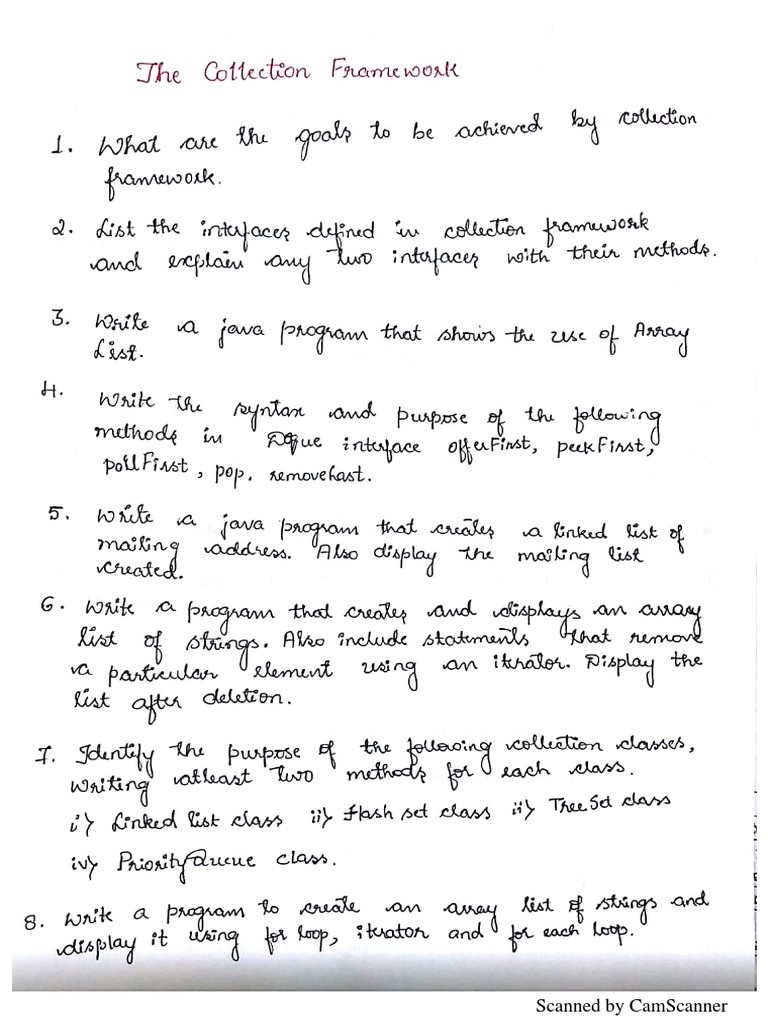 The Collection Framework
1. What are the goals to be achieved by collection
framework.
2. List the interfaces defined in collection framework
and explain any two interfaces with their methods.
3. Write a java program that shows the use of Array
List.
4. Write the syntax and purpose of the following
methods in Deque interface offerFirst, peekFirst,
pollFirst, pop, removeLast.
5. Write a java program that creates a linked list of
mailing address. Also display the mailing list
created.
6. Write a program that creates and displays an array
list of strings. Also include statements that remove
a particular element using an iterator. Display the
list after deletion.
7. Identify the purpose of the following collection classes,
writing atleast two methods for each class.
i) Linked list class ii) Hash set class ii) TreeSet class
iv) PriorityQueue class.
8. Write a program to create an array list of strings and
display it using for loop, iterator and for each loop.
Scanned by CamScanner